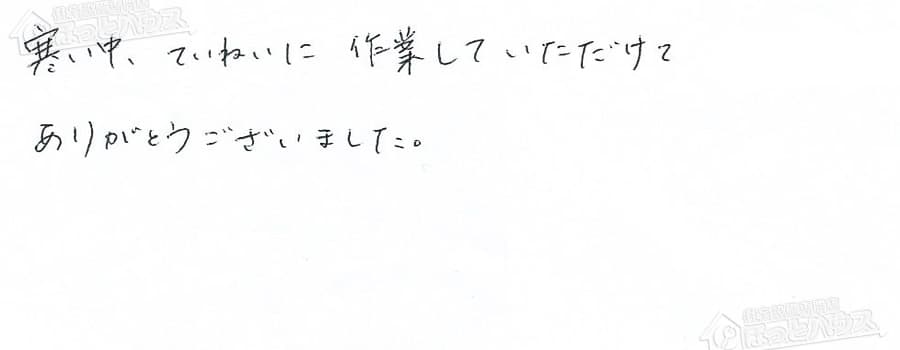 寒い中、ていねいに 作業していただけて
ありがとうございました。
ほっとハウス